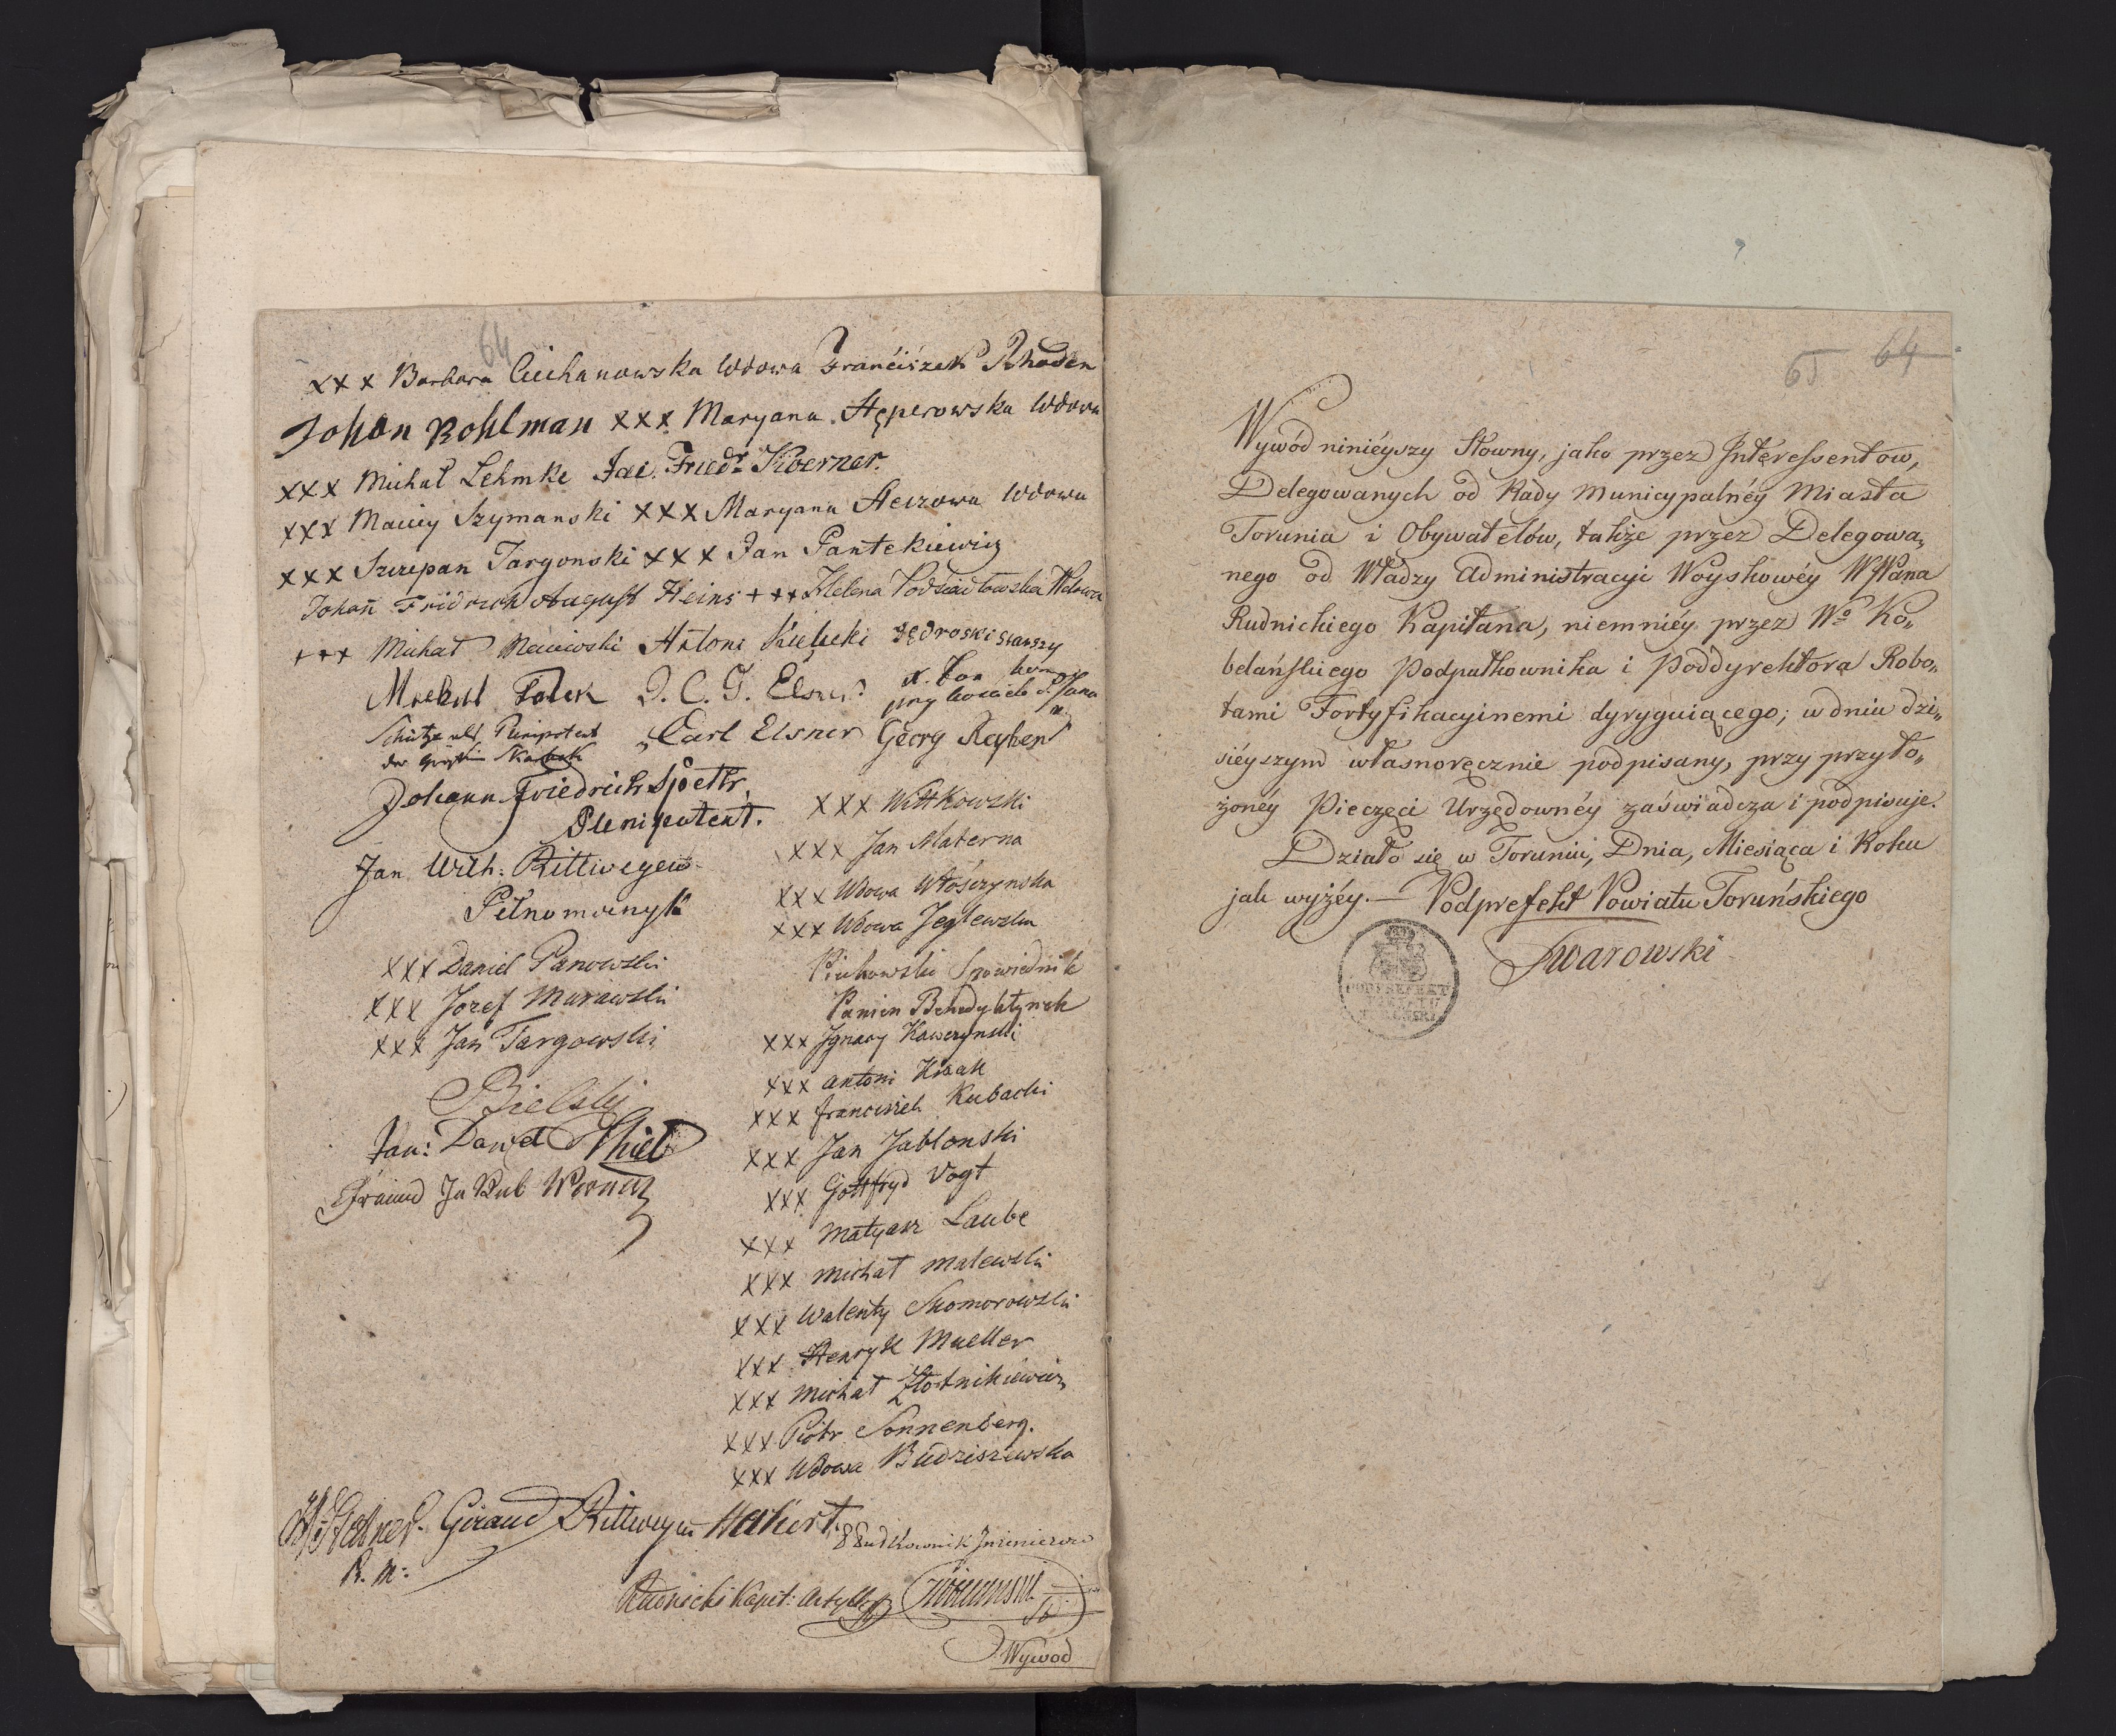 64
xxx Barbara Ciechanowska Wdowa Franciszek Rhoden
Johan Bohlman xxx Maryana Stęperowska Wdowa
xxx Michał Lehmke Jac. Friedr Koerner.
xxx Maciey Szymanski xxx Maryana Wdowa
xxx Szczepan Targonski xxx Jan Pantekiewicz
Johañ Fridrich August Heins +++ Helena Podsiadłowska Wdowa
+++ Michał Maciewski Antoni Kielucki Jędroski starszy
Falck J. C. G. Elsner
przy kosciele S. Jana
Schütze als Plenipotent
Carl Elsner Georg Reyher
Johann Friedrich Spethr.
Plenipotent.
Jan Wilh: Rittwegew
Pełnomocnyk
xxx Daniel Panowski
xxx Jozef Murawski
xxx Jan Targowski
Bielski
Jan: Dawid Thiel
Jakub
xxx Wittkowski
xxx Jan Materna
xxx Wdowa Włosczynska
xxx Wdowa Jeglewska
Spowiednik
Panien Benedyktynek
xxx Ignacy Kawczynski
xxx Antoni Kisak
xxx franciszek Kubacki
xxx Jan Jablonski
xxx Gottfryd Vogt
xxx Matyasz Laube
xxx Michał Malewski
xxx Walenty Skomorowski
xxx Henryk Mueller
xxx Michał Złotnikiewicz
xxx Piotr Sonnenberg.
xxx Wdowa Budziszewska
Giraud Rittwegew
R. M:
Inzinierow
Rudnicki Kapit: Artyller
Wywod
65 64
Wywód ninieyszy Słowny, jako przez Interessentow,
Delegowanych od Rady Municypalnéy Miasta
Torunia i Obywatelów, także przez Delegowa„
nego od Władzy Administracyi Woyskowéy WPana
Rudnickiego Kapitana, niemniéy przez Wo Ko„
belańskiego Podpułkownika i Poddyrektora Robo„
tami Fortyfikacyinemi dyryguiącego; w dniu dzi„
siéyszym własnoręcznie podpisany, przy przyło„
żonéy Pieczęci Urzędownéy zaświadcza i podpisuje.
Działo się w Toruniu, Dnia, Miesiąca i Roku
jak wyżéy.— Podprefekt Powiatu Toruńskiego
PODPREFEKT
POWIATU
Swarowski